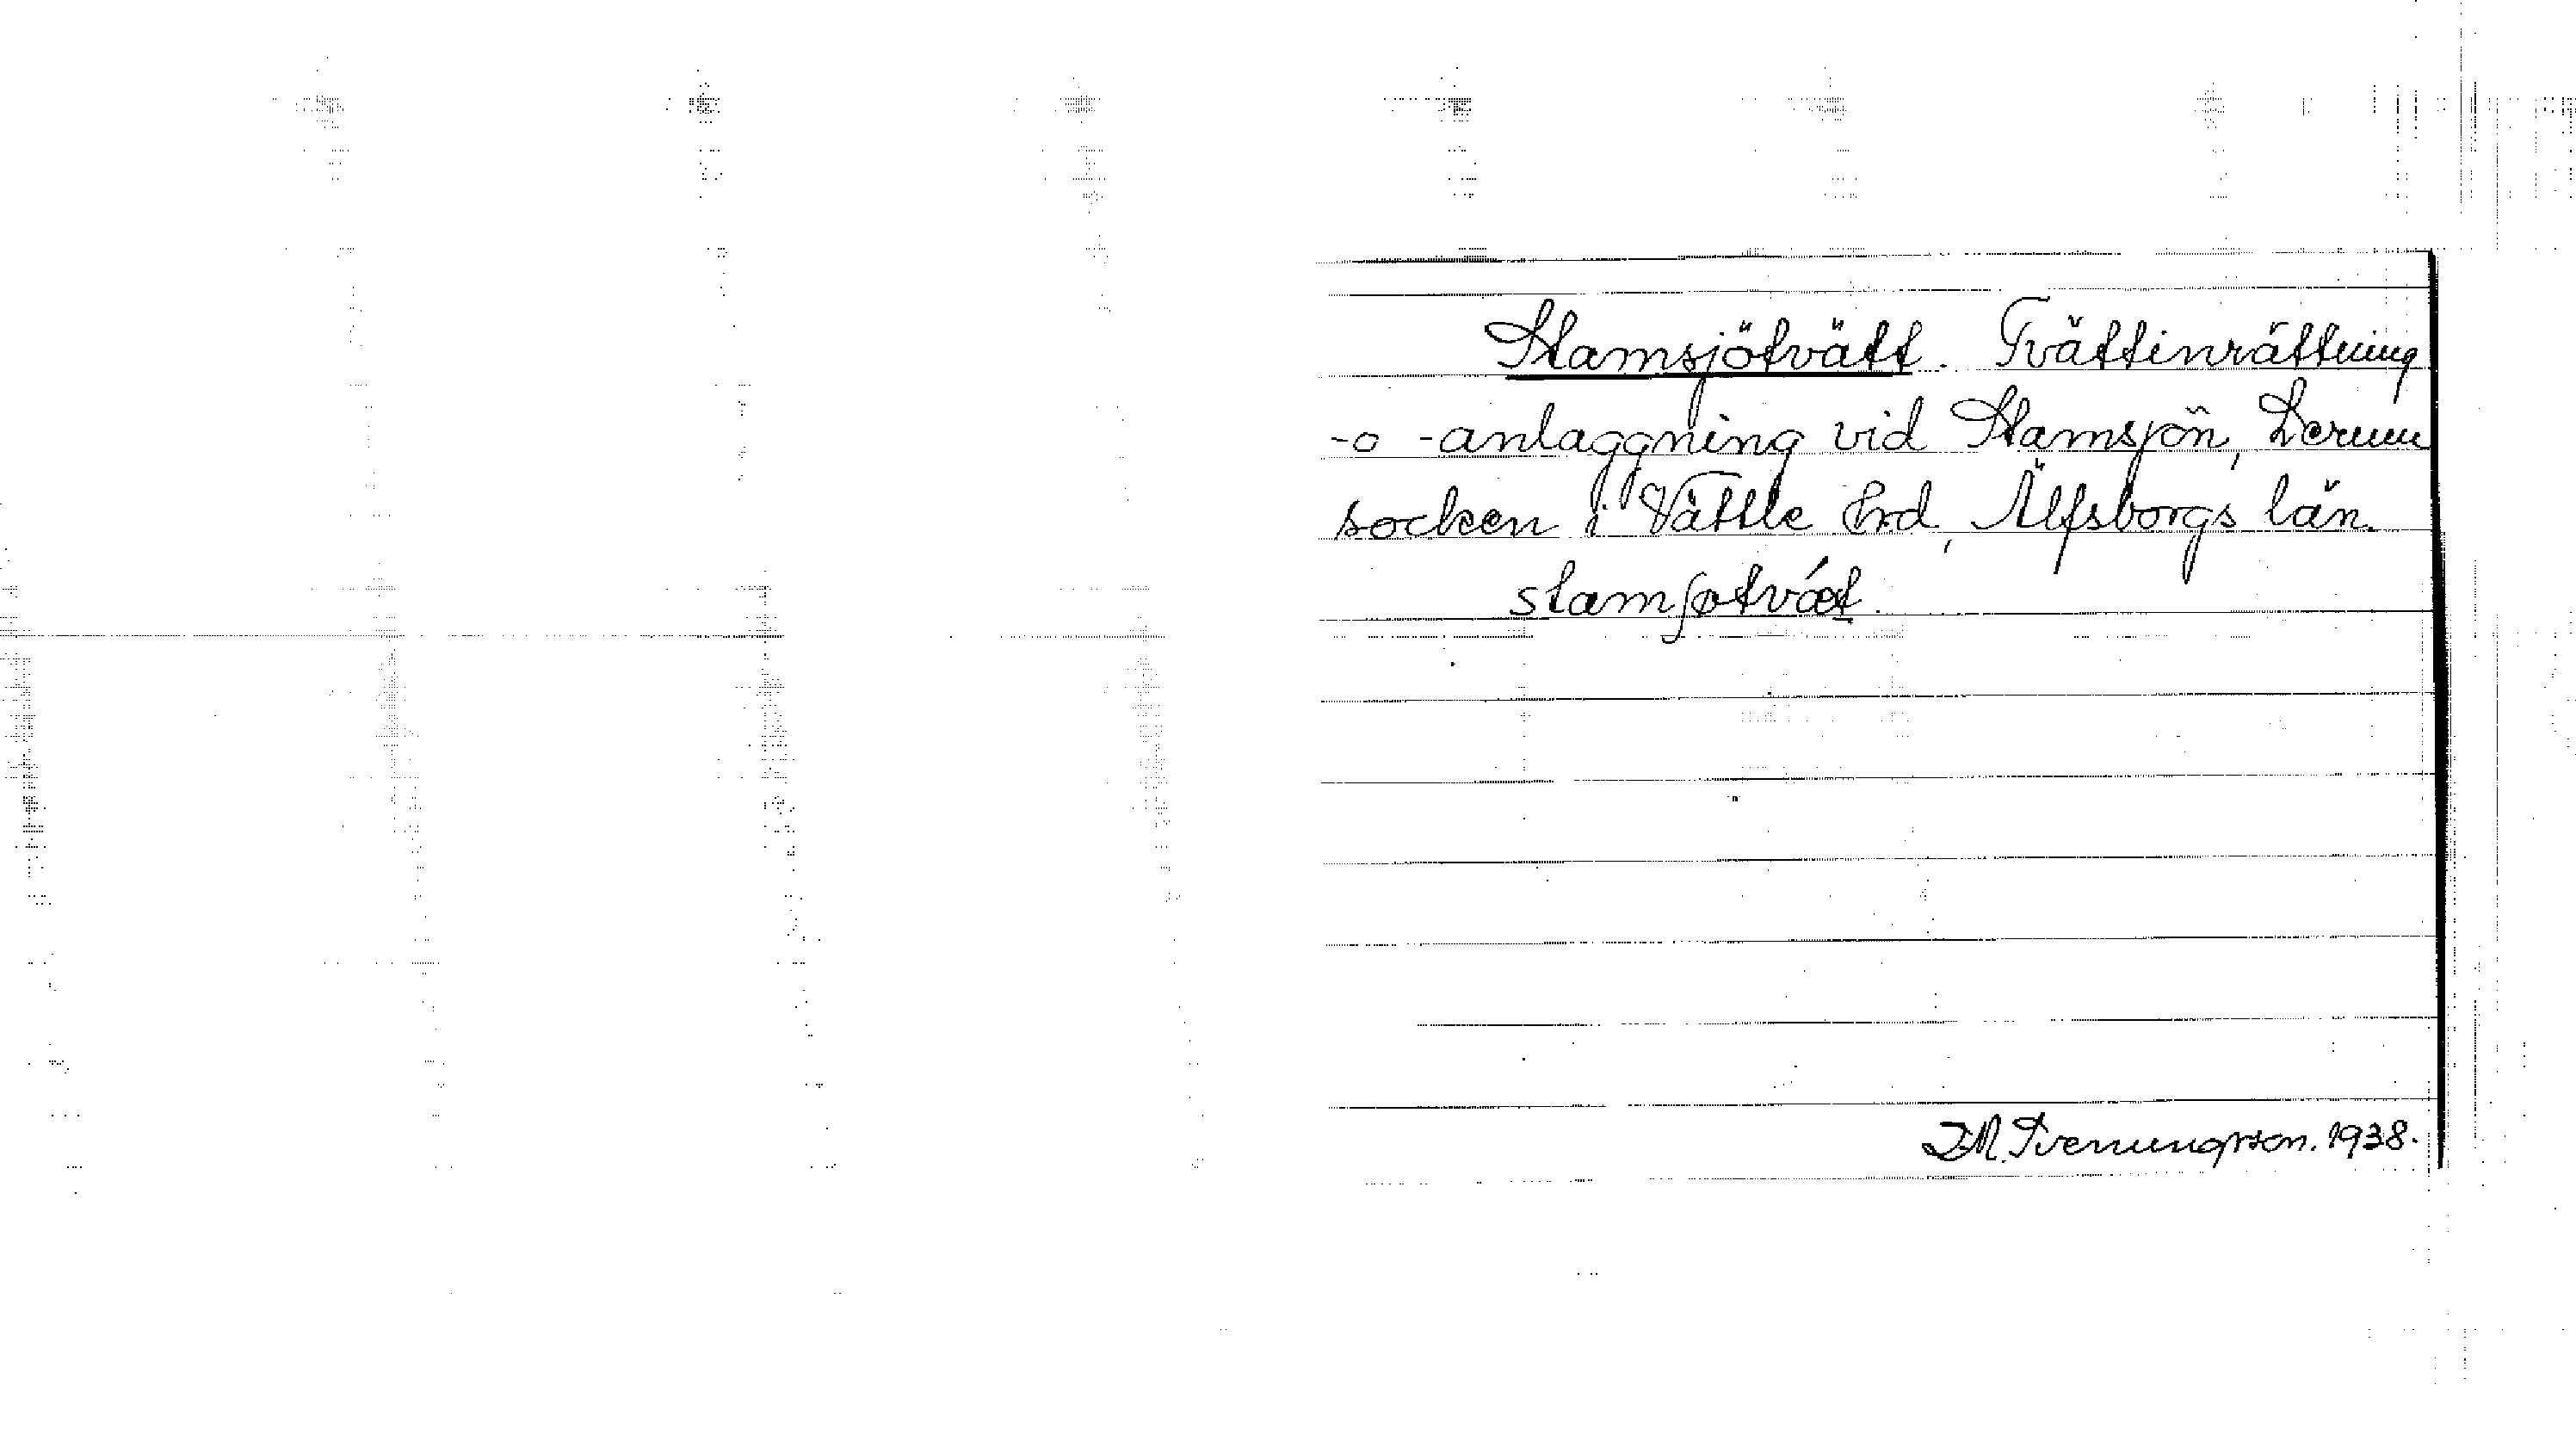 Stamsjötvätt. Tvättinrättning
-o -anläggning vid Stamsjön, Lerum
socken i Vättle hrd, Älfsborgs län.
stamʃøtvǽt.
I.M. Tvenungsson. 1938.